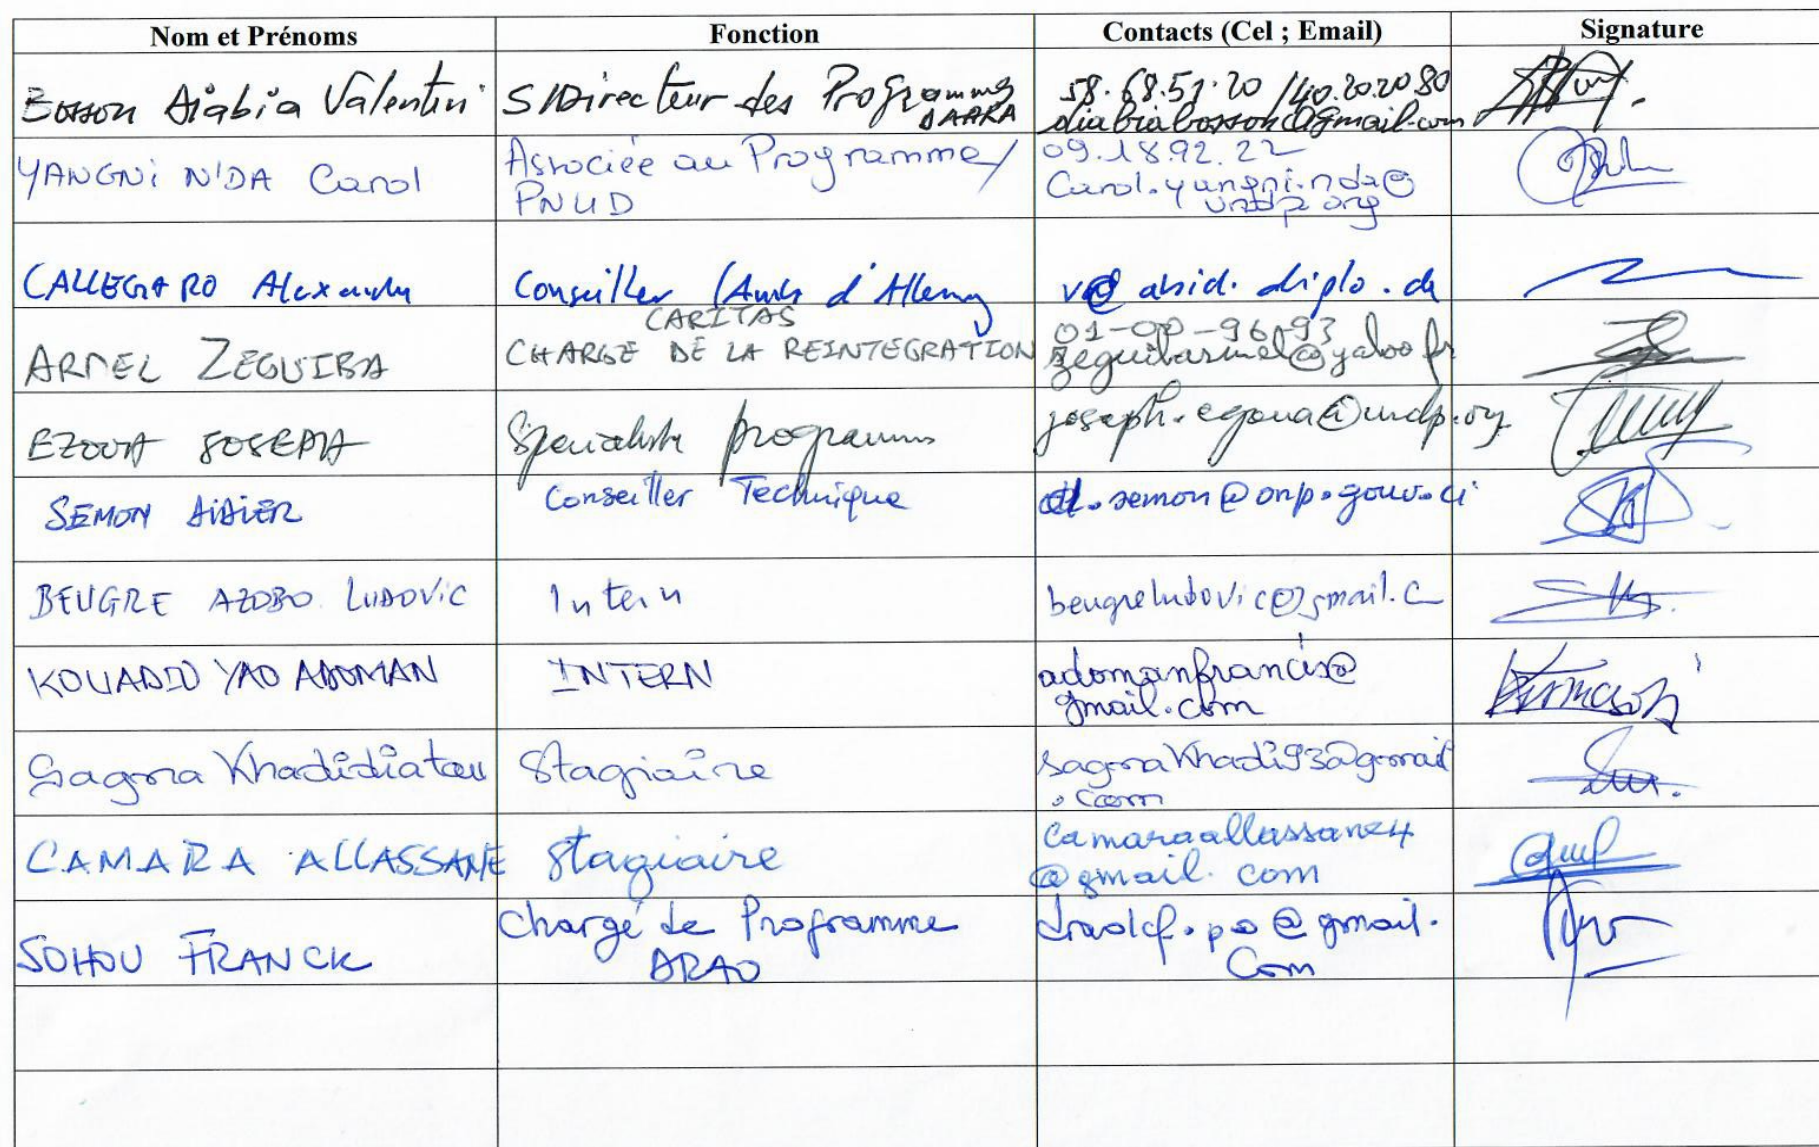 Nom et Prénoms Fonction Contacts (Cel ; Email) Signature
Bosson Diabia Valentin S/Directeur des Programmes 58.68.51.20 / 40.20.20.80
DAARA diabiabosson@gmail.com
YANGNI N'DA Carol Associée au Programme/ 09.18.92.22
PNUD Carol.yangni.nda@
undp.org
CALLEGARO Alexandre Conseiller (Amb d'Allemg v@abid.diplo.de
CARITAS 01-00-96-93
ARMEL ZEGUIBA CHARGE DE LA REINTEGRATION zeguibarmel@yahoo.fr
EZOUA JOSEPH Specialiste programme joseph.ezoua@undp.org
SEMON DIDIER Conseiller Technique d.semon@onp.gouv.ci
BEUGRE AZOBO LUDOVIC Intern beugreludovic@gmail.c
KOUADIO YAO ADOMAN INTERN adomanfrancis@
gmail.com
Sagna Khadidiatou Stagiaire sagnakhadi93@gmail
.com
CAMARA ALLASSANE Stagiaire camaraallassane4
@gmail.com
SOHOU FRANCK Chargé de Programme @gmail.
ARAO Com